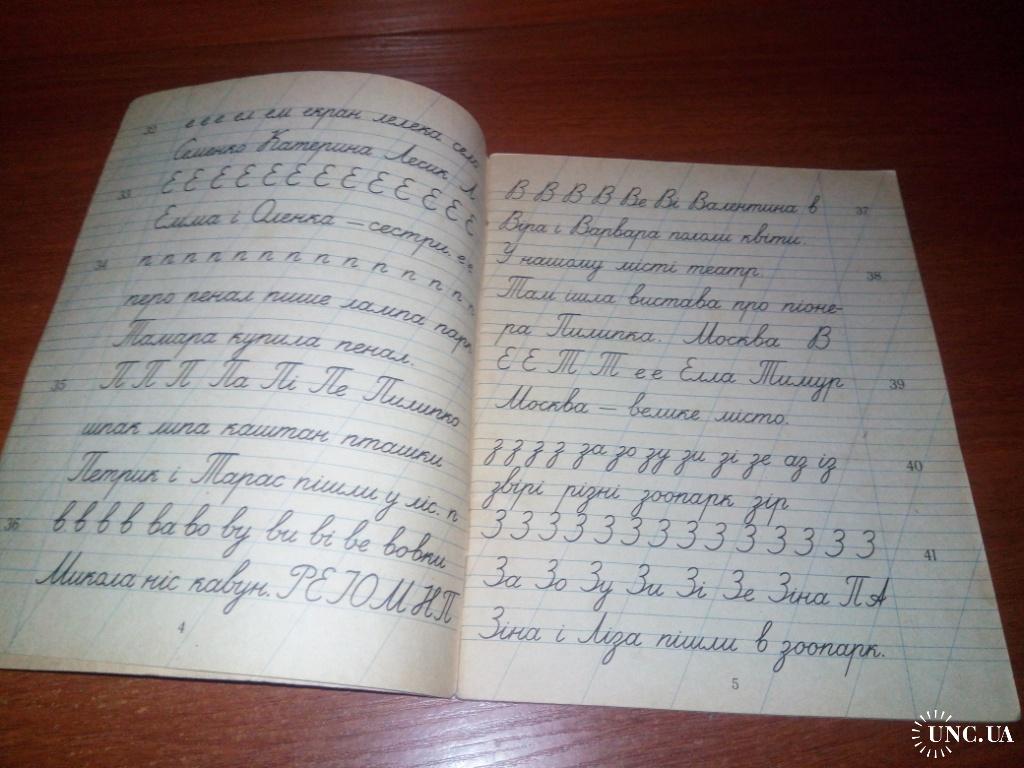 32 е е е ел ем екран лелека село
Семенко Катерина Лесик Л
33 Е Е Е Е Е Е Е Е Е Е Е Е Е
Емма і Оленка — сестри. е е
34 п п п п п п п п п п п п п п
перо пенал пише лампа парк
Тамара купила пенал.
35 П П П Па Пі Пе Пилипко
шпак липа каштан пташки
Петрик і Тарас пішли у ліс. п
36 в в в в ва во ву ви ві ве вовки
Микола ніс кавун. Р Е Ю М Н П
4
В В В В Ве Ві Валентина в 37
Віра і Варвара пололи квіти.
У нашому місті театр. 38
Там ішла вистава про піоне-
ра Пилипка. Москва В
Е Е Т Т е е Елла Тимур 39
Москва — велике місто.
з з з з за зо зу зи зі зе аз із 40
звірі різні зоопарк зір
З З З З З З З З З З З З З З 41
За Зо Зу Зи Зі Зе Зіна П А
Зіна і Ліза пішли в зоопарк.
5
UNC.UA